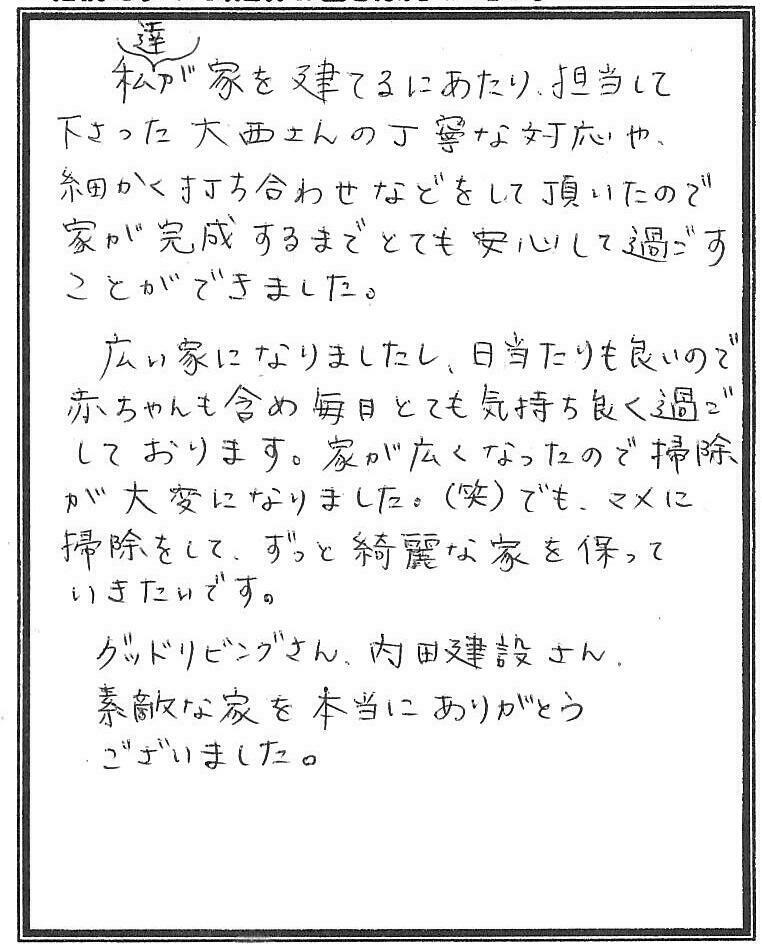 私達が家を建てるにあたり、担当して
下さった大西さんの丁寧な対応や、
細かく打ち合わせなどをして頂いたので
家が完成するまでとても安心して過ごす
ことができました。
広い家になりましたし、日当たりも良いので
赤ちゃんも含め毎日とても気持ち良く過ご
しております。家が広くなったので掃除
が大変になりました。(笑)でも、マメに
掃除をして、ずっと綺麗な家を保って
いきたいです。
グッドリビングさん、内田建設さん、
素敵な家を本当にありがとう
ございました。